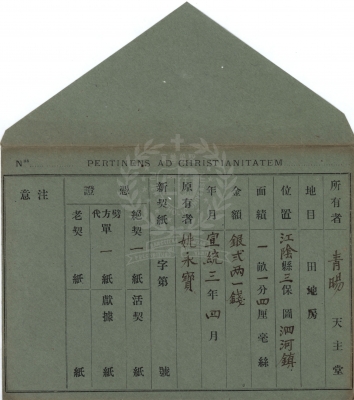 Nº
PERTINENS AD CHRISTIANITATEM
所有者 青暘 天主堂
地目 田地房
位置 江陰縣三保 圖 泗河鎮
面績 一畝一分四厘 毫 絲
金額 銀弍両一錢
年月 宣統三年四月
原有者 姚永寶
新契紙 字第 號
憑證
絕契 一 紙 活契 紙
代方單 一 紙 獻據 紙
老契 紙 紙
注意